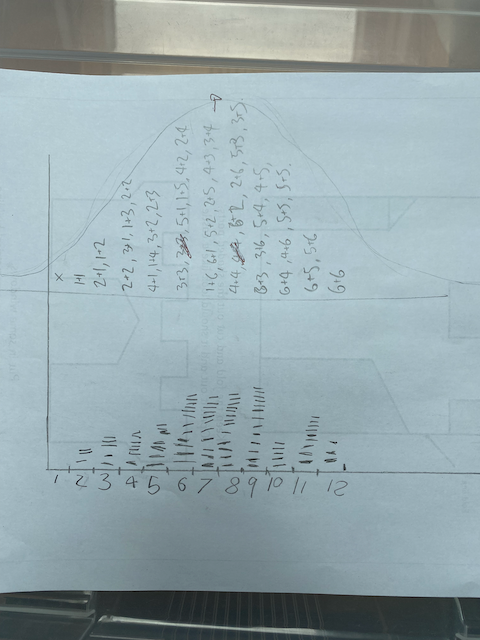 x
1+1
2+1, 1+2
2+2, 3+1, 1+3, 2+2
4+1, 1+4, 3+2, 2+3
3+3, 5+1, 1+5, 4+2, 2+4
1+6, 6+1, 5+2, 2+5, 4+3, 3+4
4+4, 6+2, 2+6, 5+3, 3+5.
6+3, 3+6, 5+4, 4+5,
6+4, 4+6, 5+5, 5+5.
6+5, 5+6
6+6
1 2 3 4 5 6 7 8 9 10 11 12